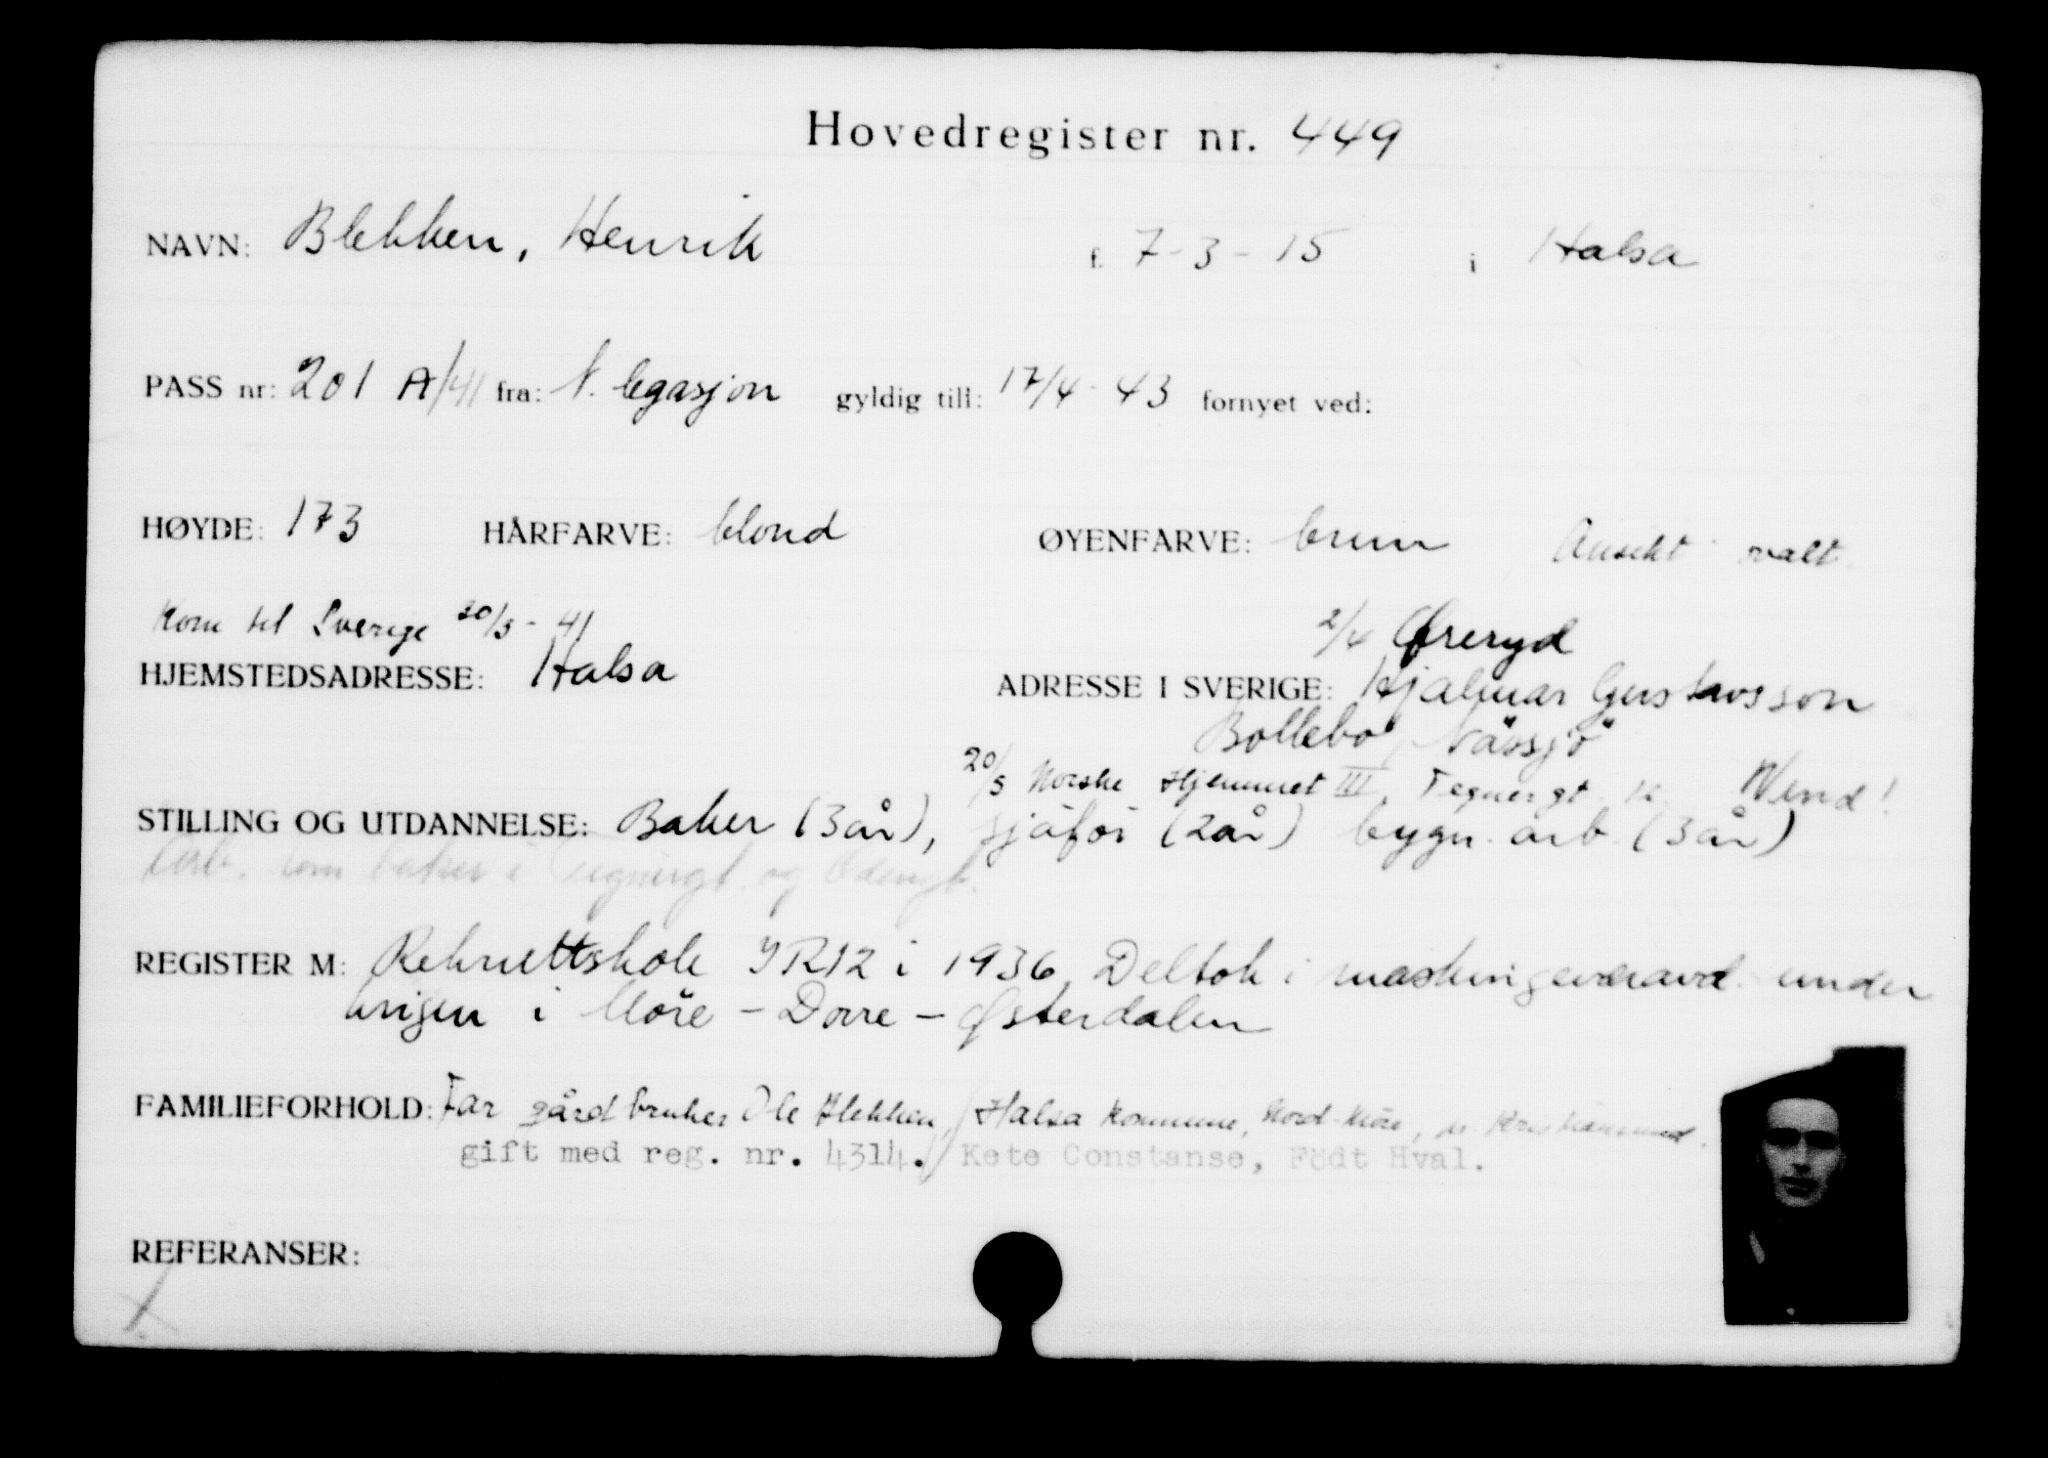 Hovedregister nr. 449
NAVN: Blekken, Henrik f. 7-3-15 i Halsa
PASS nr: 201 A/41 fra: N. legasjon gyldig till: 17/4-43 fornyet ved:
HØYDE: 173 HÅRFARVE: blond ØYENFARVE: brun Ansikt ovalt.
Kom til Sverige 20/3-41 2/4 Øreryd
HJEMSTEDSADRESSE: Halsa ADRESSE I SVERIGE: Hjalmar Gustavsson
Bollebo, Nässjö
20/5 Norske Hjemmet III, Tegnergt. 12. Vend!
STILLING OG UTDANNELSE: Baker (3 år), sjåfør (2 år) bygn. arb. (3 år)
Arb. som baker i Tegnergt. og
REGISTER M: Rekruttskole IR12 i 1936, Deltok i maskingeværavd. under
krigen i Møre - Dovre - Østerdalen
FAMILIEFORHOLD: Far gårdbruker Ole Blekken, Halsa kommune, Nord-Møre, pr. Kristiansund.
gift med reg. nr. 4314. / Kete Constanse, Födt Hval.
REFERANSER: